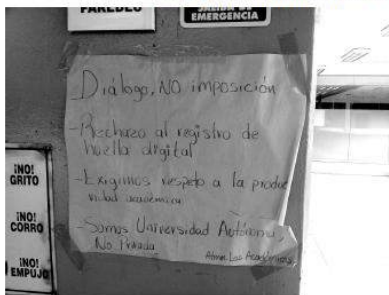 PAREDES
SALIDA DE
EMERGENCIA
Diálogo, NO imposición
-Rechazo al registro de
huella digital
-Exigimos respeto a la produc
tividad académica
-Somos Universidad Autónoma,
No Privada
Atma: Los Académicos
¡NO!
GRITO
¡NO!
CORRO
¡NO!
EMPUJO